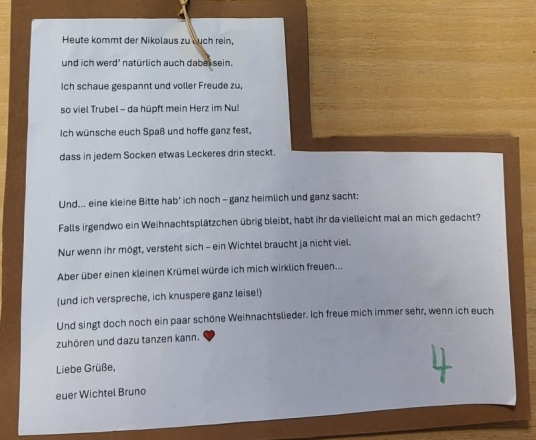 Heute kommt der Nikolaus zu euch rein,
und ich werd' natürlich auch dabei sein.
Ich schaue gespannt und voller Freude zu,
so viel Trubel – da hüpft mein Herz im Nu!
Ich wünsche euch Spaß und hoffe ganz fest,
dass in jedem Socken etwas Leckeres drin steckt.
Und... eine kleine Bitte hab' ich noch – ganz heimlich und ganz sacht:
Falls irgendwo ein Weihnachtsplätzchen übrig bleibt, habt ihr da vielleicht mal an mich gedacht?
Nur wenn ihr mögt, versteht sich – ein Wichtel braucht ja nicht viel.
Aber über einen kleinen Krümel würde ich mich wirklich freuen...
(und ich verspreche, ich knuspere ganz leise!)
Und singt doch noch ein paar schöne Weihnachtslieder. Ich freue mich immer sehr, wenn ich euch
zuhören und dazu tanzen kann. ❤
Liebe Grüße,
euer Wichtel Bruno
4